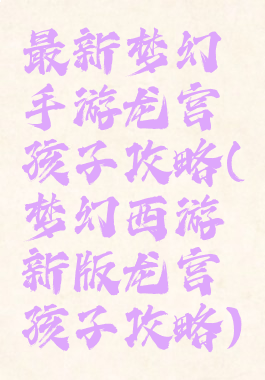 最新梦幻
手游龙宫
孩子攻略(
梦幻西游
新版龙宫
孩子攻略)